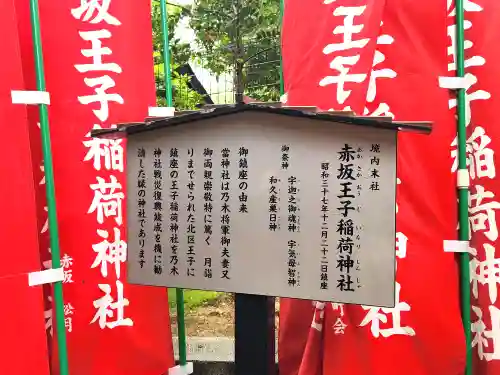 境内末社
赤坂王子稲荷神社
あかさかおうじいなりじんじゃ
昭和三十七年十二月二十二日鎮座
御祭神
宇迦之御魂神 宇気母智神
和久産巣日神
御鎮座の由来
当神社は乃木将軍御夫妻又
御両親崇敬特に篤く 月詣
りまでせられた北区王子に
鎮座の王子稲荷神社を乃木
神社戦災復興竣成を機に勧
請した縁の神社であります
赤坂王子稲荷神社
赤坂
松月
王子稲荷神社